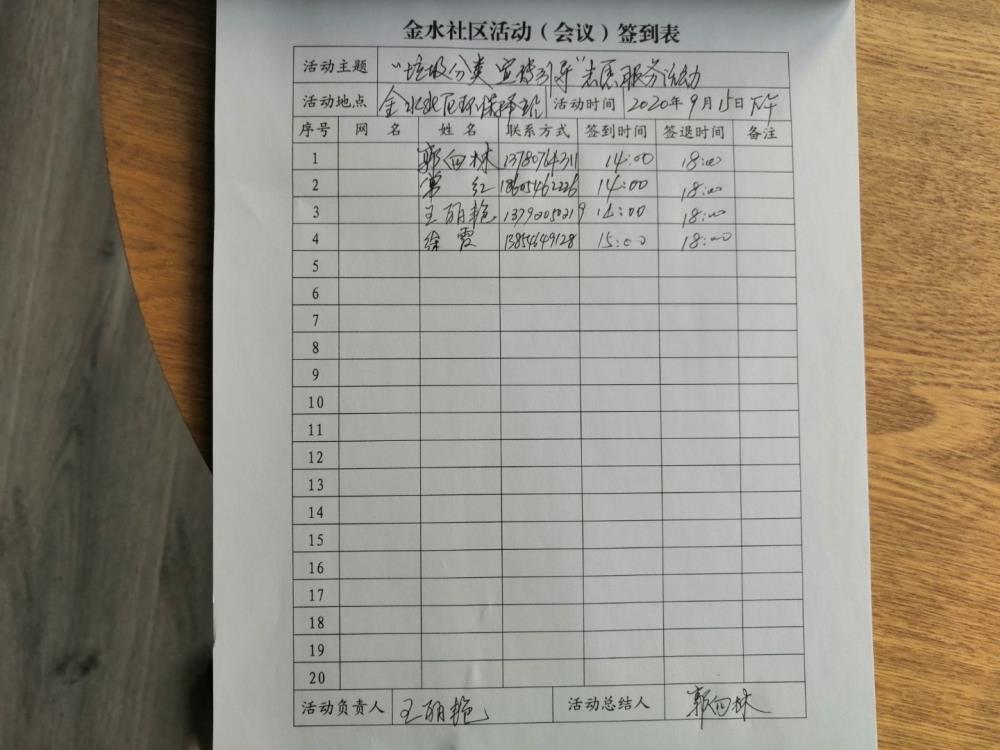 金水社区活动（会议）签到表
活动主题 “垃圾分类宣传引导”志愿服务活动
活动地点 金水社区环保驿站 活动时间 2020年9月15日下午
序号 网名 姓名 联系方式 签到时间 签退时间 备注
1 郭向林 13780764311 14:00 18:00
2 红 18605462226 14:00 18:00
3 王丽艳 13792050219 14:00 18:00
4 徐霞 13854649128 15:00 18:00
5
6
7
8
9
10
11
12
13
14
15
16
17
18
19
20
活动负责人 王丽艳 活动总结人 郭向林